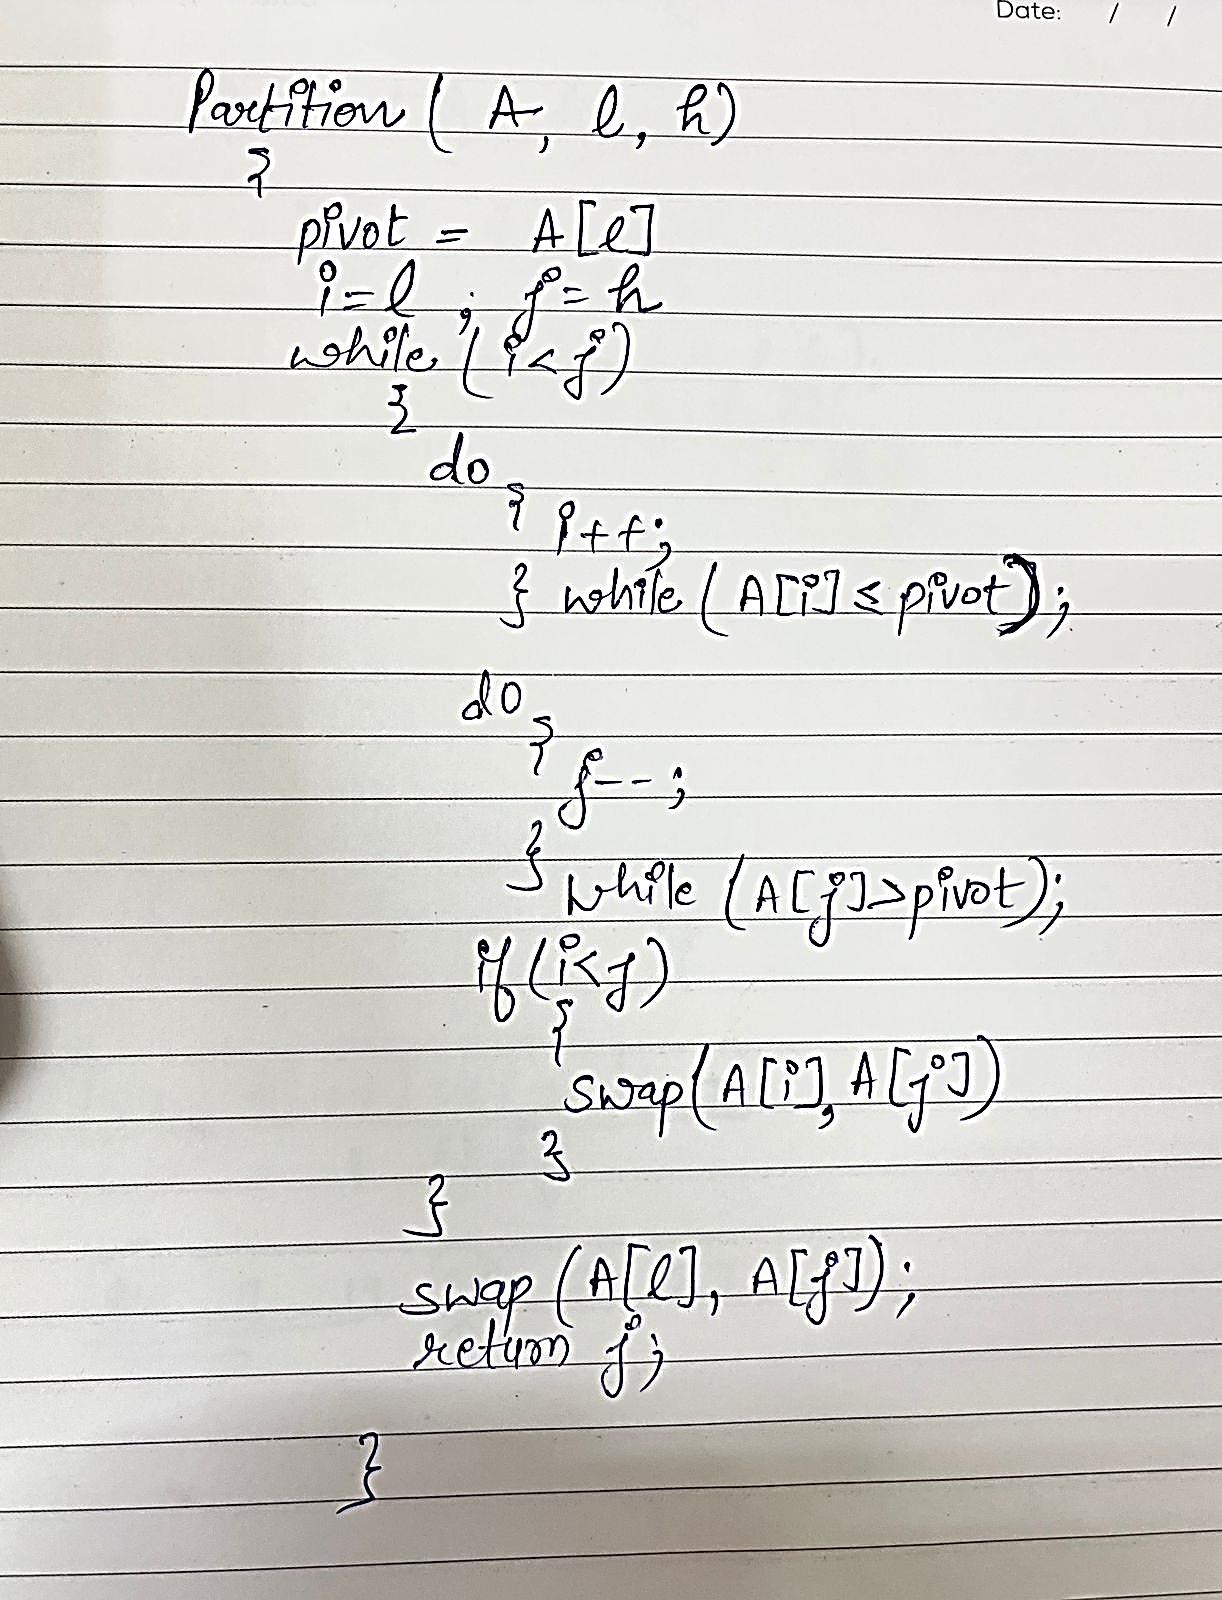 Date: / /
Partition ( A, l, h)
{
pivot = A[l]
i=l ; j=h
while (i<j)
{
do
{ i++;
} while (A[i] ≤ pivot);
do
{
j--;
}
while (A[j]>pivot);
if (i<j)
{
swap(A[i], A[j])
}
}
swap (A[l], A[j]);
return j;
}